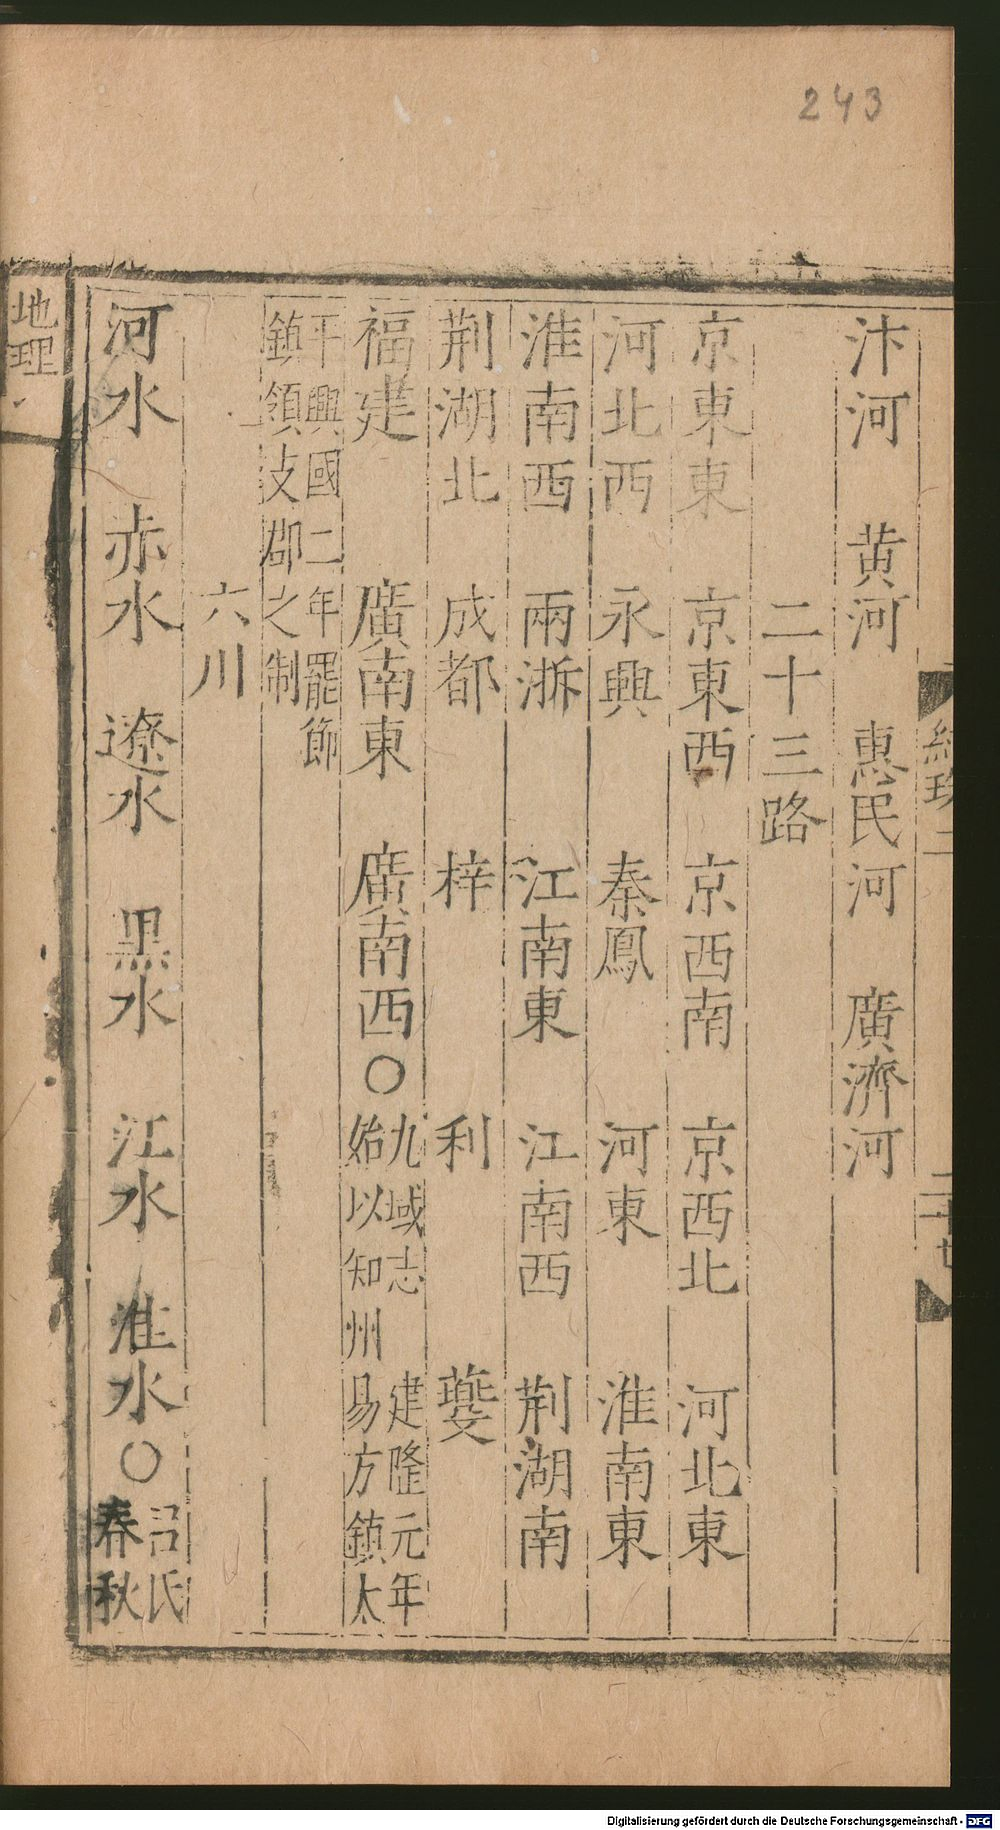 243
汴河 黄河 惠民河 廣濟河
二十三路
京東東 京東西 京西南 京西北 河北東
河北西 永興 秦鳳 河東 淮南東
淮南西 兩浙 江南東 江南西 荆湖南
荆湖北 成都 梓 利 夔
福建 廣南東 廣南西〇九域志 建隆元年
始以知州易方鎮太
平興國二年罷節
鎮領支郡之制
六川
河水 赤水 遼水 黒水 江水 淮水〇吕氏
春秋
地理
Digitalisierung gefördert durch die Deutsche Forschungsgemeinschaft - DFG